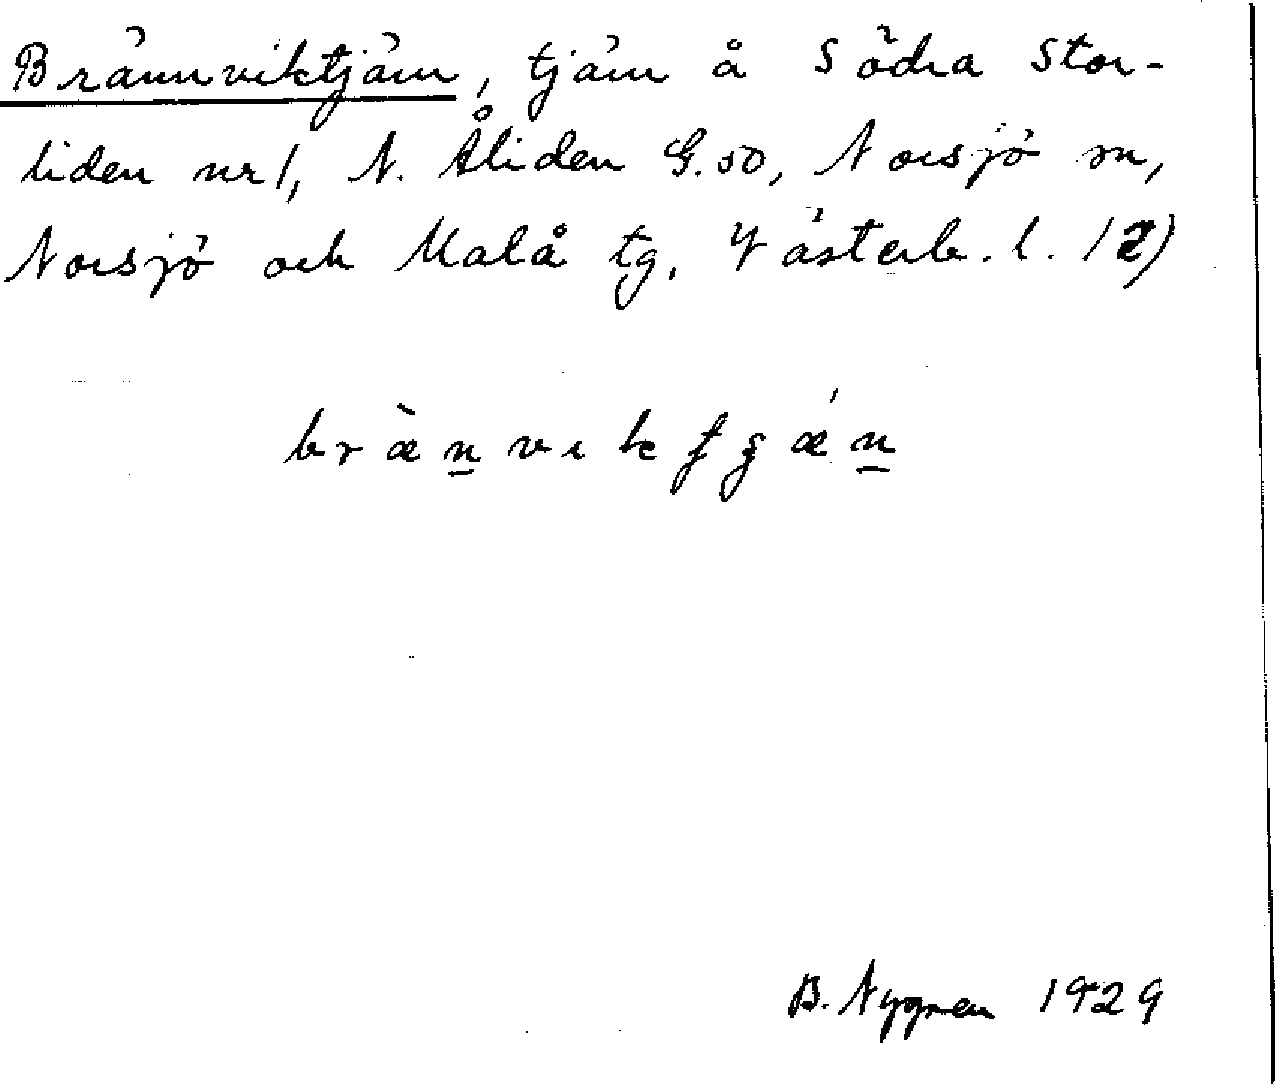 Brännviktjärn, tjärn å Södra Stor-
liden nr 1, N. Åliden G.50, Norsjö sn,
Norsjö och Malå tg, Västerb. l. 12)
bræ̀n̠vikʃʂǽn̠
B. Nygren 1929